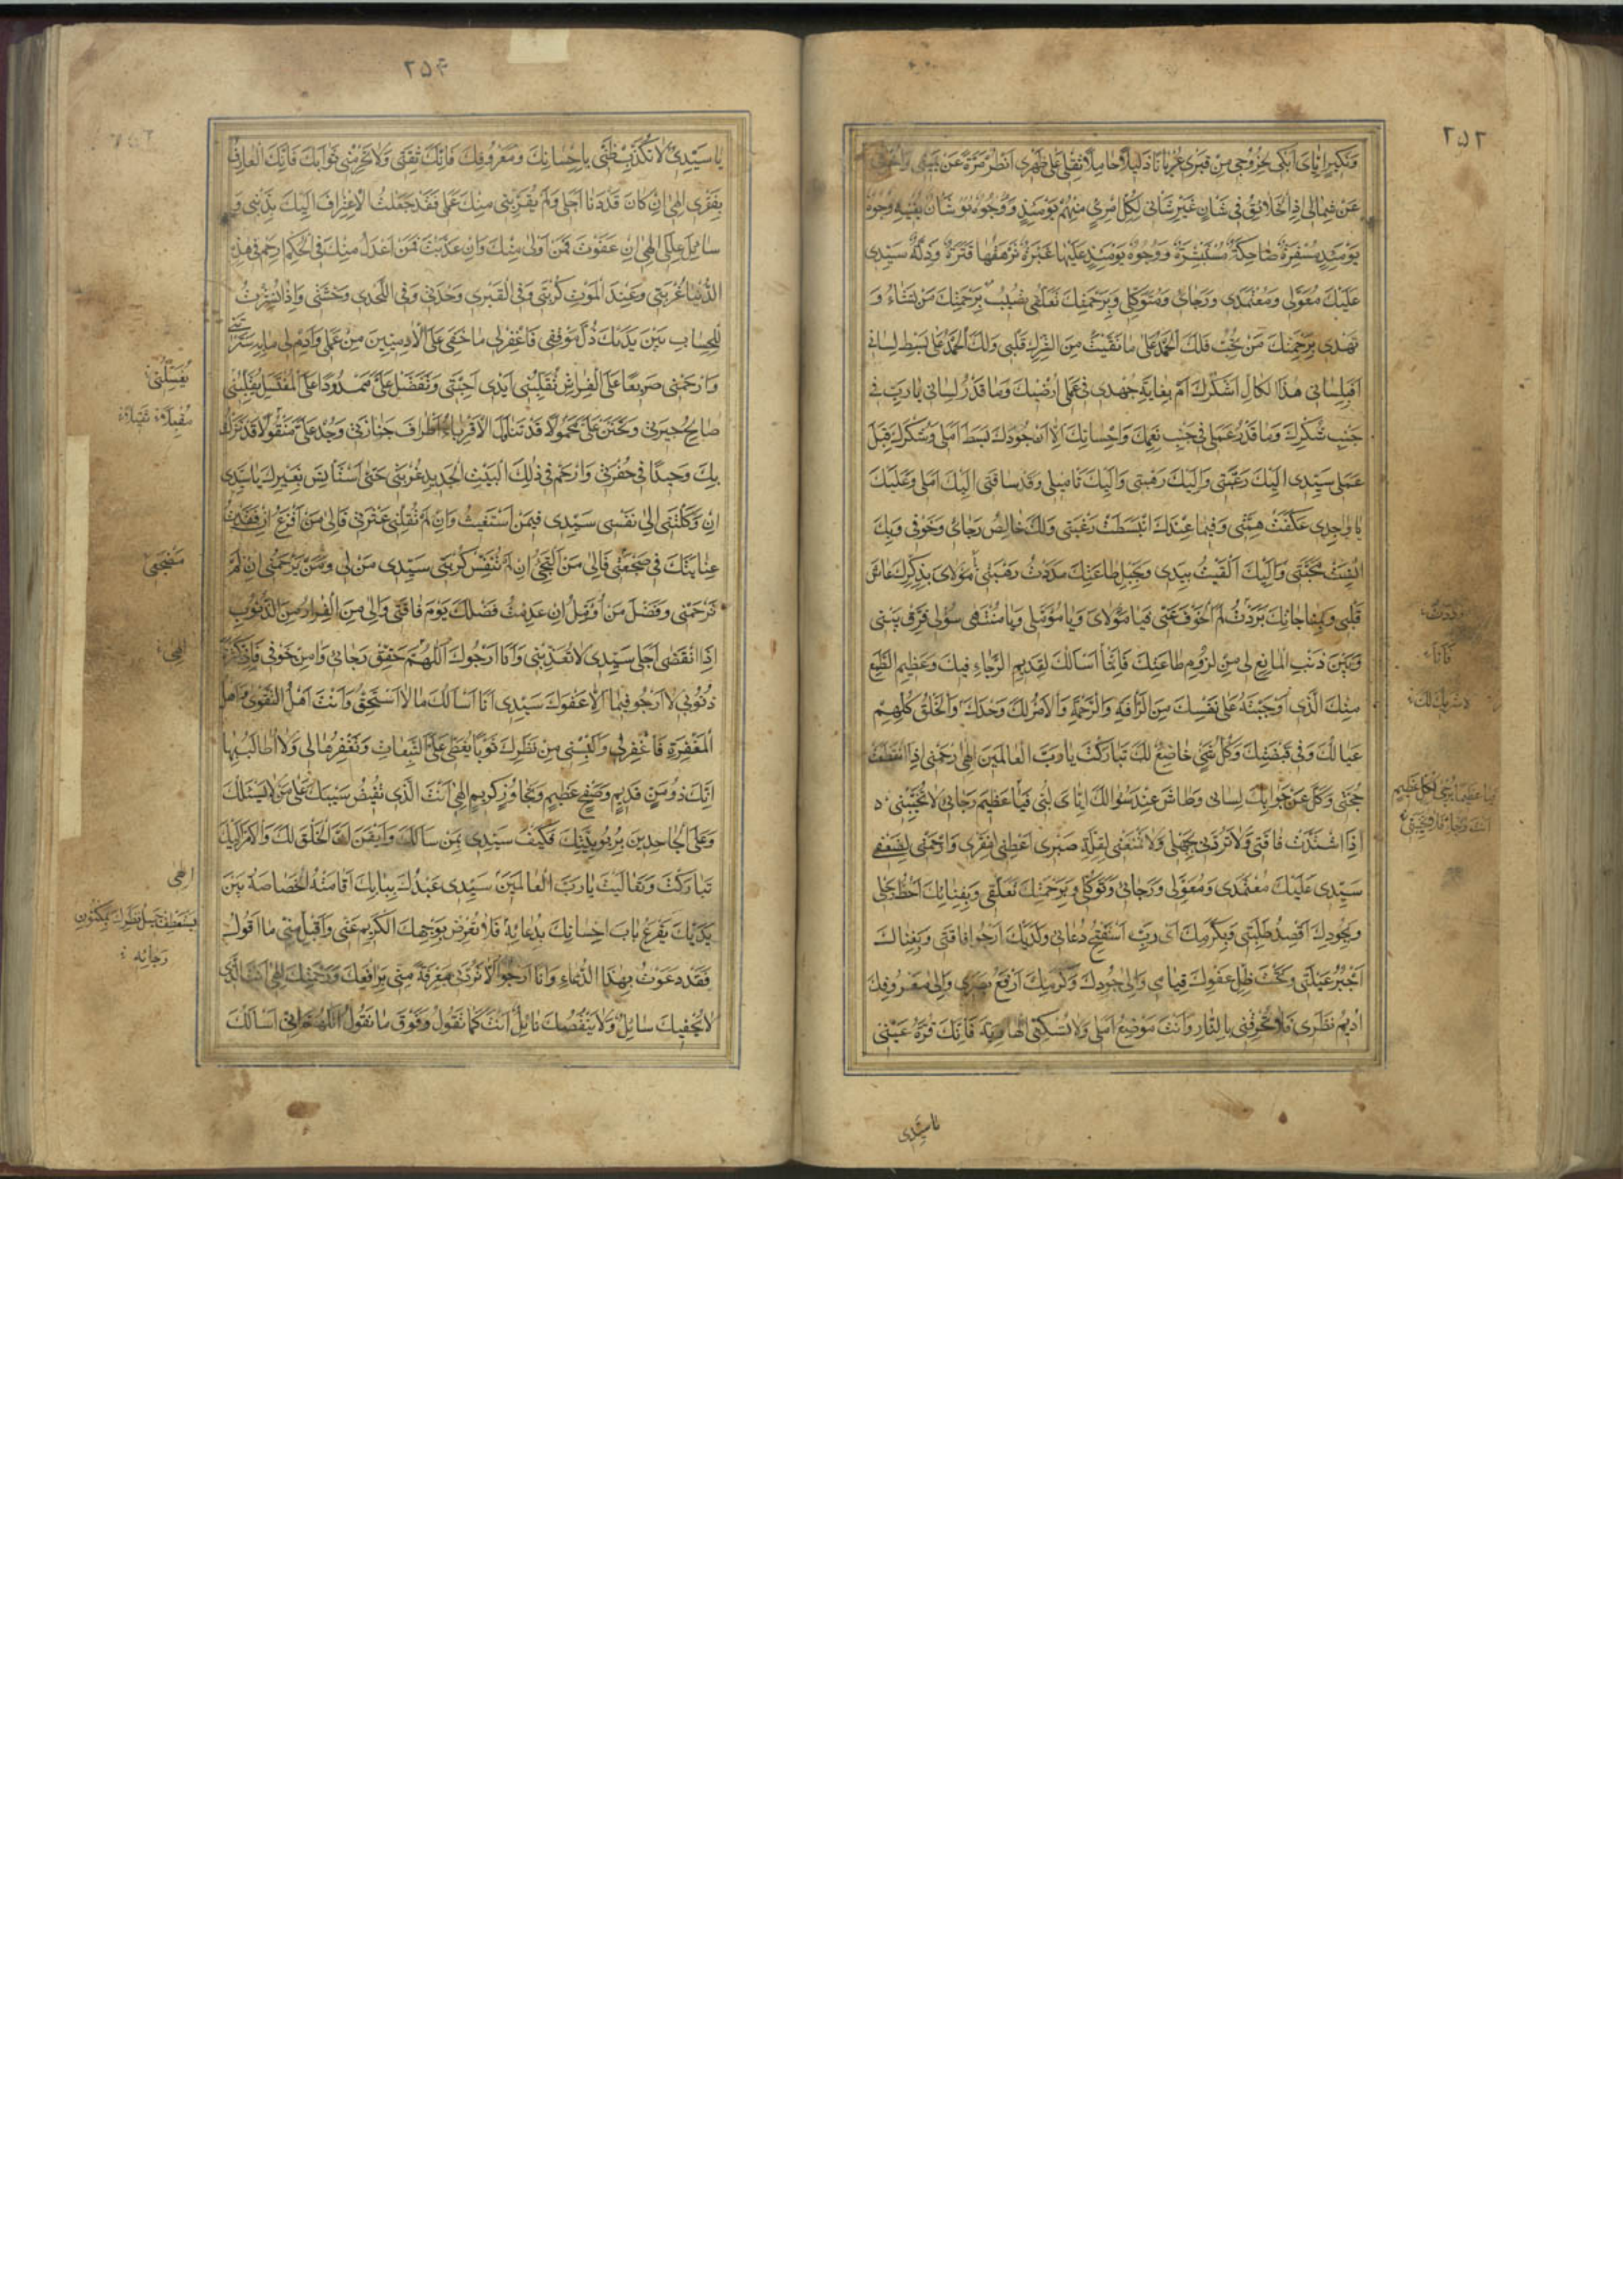 ٢٥٣
وَنَكِيرٍ اِيّايَ اَبْكي لِخُرُوجي مِنْ قَبْري عُرْيانًا ذَليلاً حامِلاً ثِقْلي عَلى ظَهْري اَنْظُرُ مَرَّةً عَنْ يَميني وَاُخْرى
عَنْ شِمالي اِذِ الْخَلائِقُ في شَاْنٍ غَيْرِ شَاْني لِكُلِّ امْرِئٍ مِنْهُمْ يَوْمَئِذٍ شَاْنٌ يُغْنيهِ وُجُوهٌ
يَوْمَئِذٍ مُسْفِرَةٌ ضاحِكَةٌ مُسْتَبْشِرَةٌ وَوُجُوهٌ يَوْمَئِذٍ عَلَيْها غَبَرَةٌ تَرْهَقُها قَتَرَةٌ وَذِلَّةٌ سَيِّدي
عَلَيْكَ مُعَوَّلي وَمُعْتَمَدي وَرَجائي وَمُتَوَكَّلي وَبِرَحْمَتِكَ تَعَلُّقي تُصيبُ بِرَحْمَتِكَ مَنْ تَشاءُ وَ
تَهْدي بِرَحْمَتِكَ مَنْ تُحِبُّ فَلَكَ الْحَمْدُ عَلى ما نَقَّيْتَ مِنَ الشِّرْكِ قَلْبي وَلَكَ الْحَمْدُ عَلى بَسْطِ لِساني
اَفَبِلِساني هذَا الْكالِّ اَشْكُرُكَ اَمْ بِغايَةِ جُهْدي في عَمَلي اُرْضيكَ وَما قَدْرُ لِساني يا رَبِّ في
جَنْبِ شُكْرِكَ وَما قَدْرُ عَمَلي في جَنْبِ نِعَمِكَ وَاِحْسانِكَ اِلاّ اَنَّ جُودَكَ بَسَطَ اَمَلي وَشُكْرَكَ قَبِلَ
عَمَلي سَيِّدي اِلَيْكَ رَغْبَتي وَاِلَيْكَ رَهْبَتي وَاِلَيْكَ تَأْميلي وَقَدْ ساقَني اِلَيْكَ اَمَلي وَعَلَيْكَ
يا واجِدي عَكَفَتْ هِمَّتي وَفيما عِنْدَكَ انْبَسَطَتْ رَغْبَتي وَلَكَ خالِصُ رَجائي وَخَوْفي وَبِكَ
اَنِسَتْ مَحَبَّتي وَاِلَيْكَ اَلْقَيْتُ بِيَدي وَبِحَبْلِ طاعَتِكَ مَدَدْتُ رَهْبَتي مَوْلايَ بِذِكْرِكَ عاشَ
قَلْبي وَبِمُناجاتِكَ بَرَّدْتُ اَلَمَ الْخَوْفِ عَنّي فَيا مَوْلايَ وَيا مُؤَمَّلي وَيا مُنْتَهى سُؤْلي فَرِّقْ بَيْني
وَبَيْنَ ذَنْبِيَ الْمانِعِ لي مِنْ لُزُومِ طاعَتِكَ فَاِنَّما اَسْاَلُكَ لِقَديمِ الرَّجاءِ فيكَ وَعَظيمِ الطَّمَعِ
مِنْكَ الَّذي اَوْجَبْتَهُ عَلى نَفْسِكَ مِنَ الرَّأْفَةِ وَالرَّحْمَةِ وَالْاَمْرُ لَكَ وَحْدَكَ وَالْخَلْقُ كُلُّهُمْ
عِيالُكَ وَفي قَبْضَتِكَ وَكُلُّ شَيْءٍ خاضِعٌ لَكَ تَبارَكْتَ يا رَبَّ الْعالَمينَ اِلهي ارْحَمْني اِذَا انْقَطَعَتْ
حُجَّتي وَكَلَّ عَنْ جَوابِكَ لِساني وَطاشَ عِنْدَ سُؤالِكَ اِيّايَ لُبّي فَيا عَظيمَ رَجائي لا تُخَيِّبْني
اِذَا اشْتَدَّتْ فاقَتي وَلا تَرُدَّني لِجَهْلي وَلا تَمْنَعْني لِقِلَّةِ صَبْري اَعْطِني لِفَقْري وَارْحَمْني لِضَعْفي
سَيِّدي عَلَيْكَ مُعْتَمَدي وَمُعَوَّلي وَرَجائي وَتَوَكُّلي وَبِرَحْمَتِكَ تَعَلُّقي وَبِفِنائِكَ اَحُطُّ رَحْلي
وَبِجُودِكَ اَقْصِدُ طَلِبَتي وَبِكَرَمِكَ اَيْ رَبِّ اَسْتَفْتِحُ دُعائي وَلَدَيْكَ اَرْجُو فاقَتي وَبِغِناكَ
اَجْبُرُ عَيْلَتي وَتَحْتَ ظِلِّ عَفْوِكَ قِيامي وَاِلى جُودِكَ وَكَرَمِكَ اَرْفَعُ بَصَري وَاِلى مَعْرُوفِكَ
اُديمُ نَظَري فَلا تُحْرِقْني بِالنّارِ وَاَنْتَ مَوْضِعُ اَمَلي وَلا تُسْكِنِّي الْهاوِيَةَ فَاِنَّكَ قُرَّةُ عَيْني
يا سَيِّدي
فَاَنَا
لا شَريكَ لَكَ
٢٥۴
يا سَيِّدي لا تُكَذِّبْ ظَنّي بِاِحْسانِكَ وَمَعْرُوفِكَ فَاِنَّكَ ثِقَتي وَلا تَحْرِمْني ثَوابَكَ فَاِنَّكَ الْعارِفُ
بِفَقْري اِلهي اِنْ كانَ قَدْ دَنا اَجَلي وَلَمْ يُقَرِّبْني مِنْكَ عَمَلي فَقَدْ جَعَلْتُ الْاِعْتِرافَ اِلَيْكَ بِذَنْبي وَ
سائِلَ عِلَلي اِلهي اِنْ عَفَوْتَ فَمَنْ اَوْلى مِنْكَ وَاِنْ عَذَّبْتَ فَمَنْ اَعْدَلُ مِنْكَ فِي الْحُكْمِ ارْحَمْ في هذِهِ
الدُّنْيا غُرْبَتي وَعِنْدَ الْمَوْتِ كُرْبَتي وَفي الْقَبْرِ وَحْدَتي وَفي اللَّحْدِ وَحْشَتي وَاِذا نُشِرْتُ
لِلْحِسابِ بَيْنَ يَدَيْكَ ذُلَّ مَوْقِفي فَاغْفِرْ لي ما خَفِيَ عَلَى الْآدَمِيّينَ مِنْ عَمَلي وَاَدِمْ لي ما بِهِ سَتَرْتَني
وَارْحَمْني صَريعًا عَلَى الْفِراشِ تُقَلِّبُني اَيْدي اَحِبَّتي وَتَفَضَّلْ عَلَيَّ مَمْدُودًا عَلَى الْمُغْتَسَلِ يُقَلِّبُني
صالِحُ جيرَتي وَتَحَنَّنْ عَلَيَّ مَحْمُولاً قَدْ تَناوَلَ الْاَقْرِباءُ اَطْرافَ جَنازَتي وَجُدْ عَلَيَّ مَنْقُولاً قَدْ نَزَلْتُ
بِكَ وَحيدًا في حُفْرَتي وَارْحَمْ في ذلِكَ الْبَيْتِ الْجَديدِ غُرْبَتي حَتّى لا اَسْتَأْنِسَ بِغَيْرِكَ يا سَيِّدي
اِنْ وَكَلْتَني اِلى نَفْسي سَيِّدي فَبِمَنْ اَسْتَغيثُ وَاِنْ لَمْ تُقِلْني عَثْرَتي فَاِلى مَنْ اَفْزَعُ اِنْ فَقَدْتُ
عِنايَتَكَ في ضَجْعَتي فَاِلى مَنْ اَلْتَجِئُ اِنْ لَمْ تُنَفِّسْ كُرْبَتي سَيِّدي مَنْ لي وَمَنْ يَرْحَمُني اِنْ لَمْ
تَرْحَمْني وَفَضْلَ مَنْ اُؤَمِّلُ اِنْ عَدِمْتُ فَضْلَكَ يَوْمَ فاقَتي وَاِلى مَنِ الْفِرارُ مِنَ الذُّنُوبِ
اِذَا انْقَضى اَجَلي سَيِّدي لا تُعَذِّبْني وَاَنَا اَرْجُوكَ اَللّهُمَّ حَقِّقْ رَجائي وَآمِنْ خَوْفي فَاِنَّ كَثْرَةَ
ذُنُوبي لا اَرْجُو فيها اِلاّ عَفْوَكَ سَيِّدي اَنَا اَسْاَلُكَ ما لا اَسْتَحِقُّ وَاَنْتَ اَهْلُ التَّقْوى وَاَهْلُ
الْمَغْفِرَةِ فَاغْفِرْ لي وَاَلْبِسْني مِنْ نَظَرِكَ ثَوْبًا يُغَطّي عَلَيَّ التَّبِعاتِ وَتَغْفِرُها لي وَلا اُطالَبُ بِها
اِنَّكَ ذُو مَنٍّ قَديمٍ وَصَفْحٍ عَظيمٍ وَتَجاوُزٍ كَريمٍ اِلهي اَنْتَ الَّذي تُفيضُ سَيْبَكَ عَلى مَنْ لا يَسْئَلُكَ
وَعَلَى الْجاحِدينَ بِرُبُوبِيَّتِكَ فَكَيْفَ سَيِّدي بِمَنْ سَاَلَكَ وَاَيْقَنَ اَنَّ الْخَلْقَ لَكَ وَالْاَمْرَ اِلَيْكَ
تَبارَكْتَ وَتَعالَيْتَ يا رَبَّ الْعالَمينَ سَيِّدي عَبْدُكَ بِبابِكَ اَقامَتْهُ الْخَصاصَةُ بَيْنَ
يَدَيْكَ يَقْرَعُ بابَ اِحْسانِكَ بِدُعائِهِ فَلا تُعْرِضْ بِوَجْهِكَ الْكَريمِ عَنّي وَاقْبَلْ مِنّي ما اَقُولُ
فَقَدْ دَعَوْتُ بِهذَا الدُّعاءِ وَاَنَا اَرْجُو اَلاّ تَرُدَّني مَعْرِفَةً مِنّي بِرَأْفَتِكَ وَرَحْمَتِكَ اِلهي اَنْتَ الَّذي
لا يُحْفيكَ سائِلٌ وَلا يَنْقُصُكَ نائِلٌ اَنْتَ كَما تَقُولُ وَفَوْقَ ما نَقُولُ اَللّهُمَّ اِنّي اَسْاَلُكَ
يُغَسِّلُني
مَضْجَعي
اِلهي
اِلهي
وَيَسْتَعْطِفُ جَميلَ نَظَرِكَ بِمَكْنُونِ
رَجائِهِ